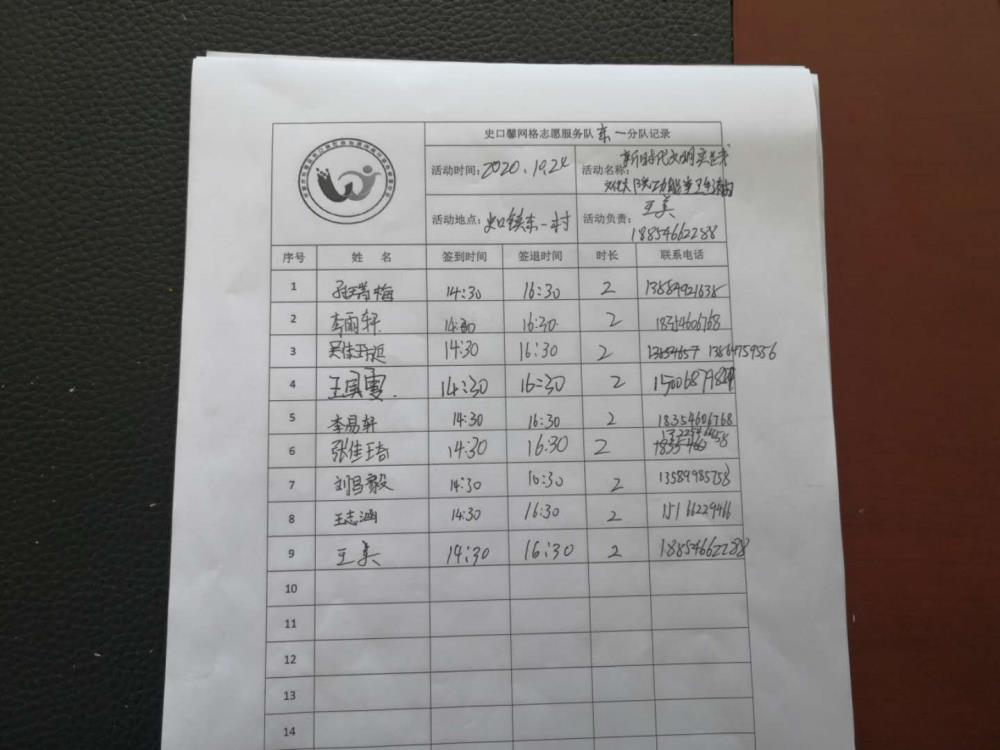 史口馨网格志愿服务队东一分队记录
活动时间：2020.10.24 活动名称：新时代文明实践
活动地点：史口镇东一村 活动负责：王美
18854662288
序号 姓 名 签到时间 签退时间 时长 联系电话
1 14:30 16:30 2 13589921635
2 李雨轩 14:30 16:30 2 18354606768
3 14:30 16:30 2 13864759556
4 14:30 16:30 2
5 李易轩 14:30 16:30 2 18354606768
6 张佳琦 14:30 16:30 2
7 刘昌毅 14:30 16:30 2 13589985758
8 王志涵 14:30 16:30 2 15166229466
9 王美 14:30 16:30 2 18854662288
10
11
12
13
14